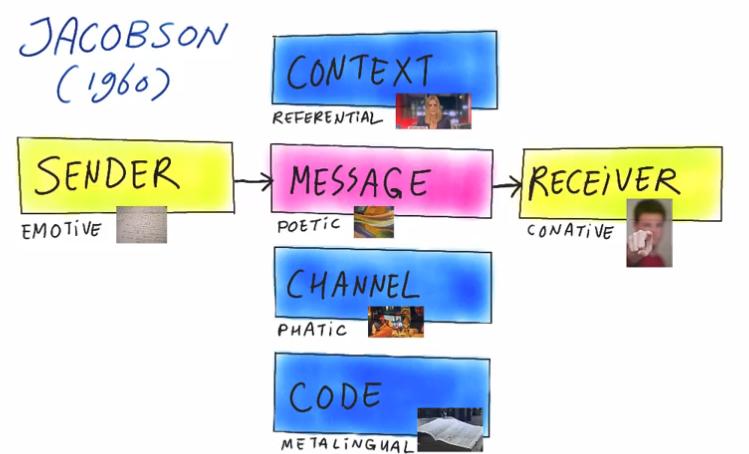 JACOBSON
(1960)
CONTEXT
REFERENTIAL
SENDER
EMOTIVE
MESSAGE
POETIC
RECEIVER
CONATIVE
CHANNEL
PHATIC
CODE
METALINGUAL